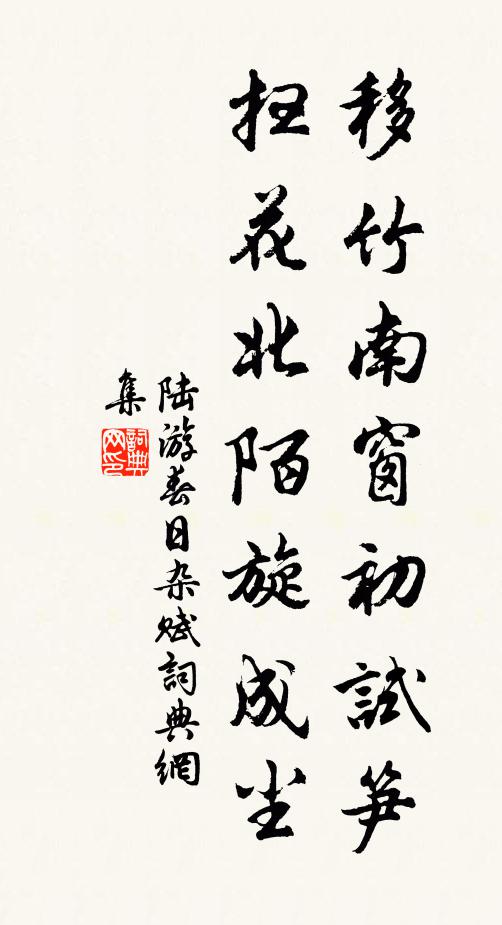 移竹南窗初試笋
扫花北陌旋成尘
陆游春日杂赋詞典網
集
詞典
网印